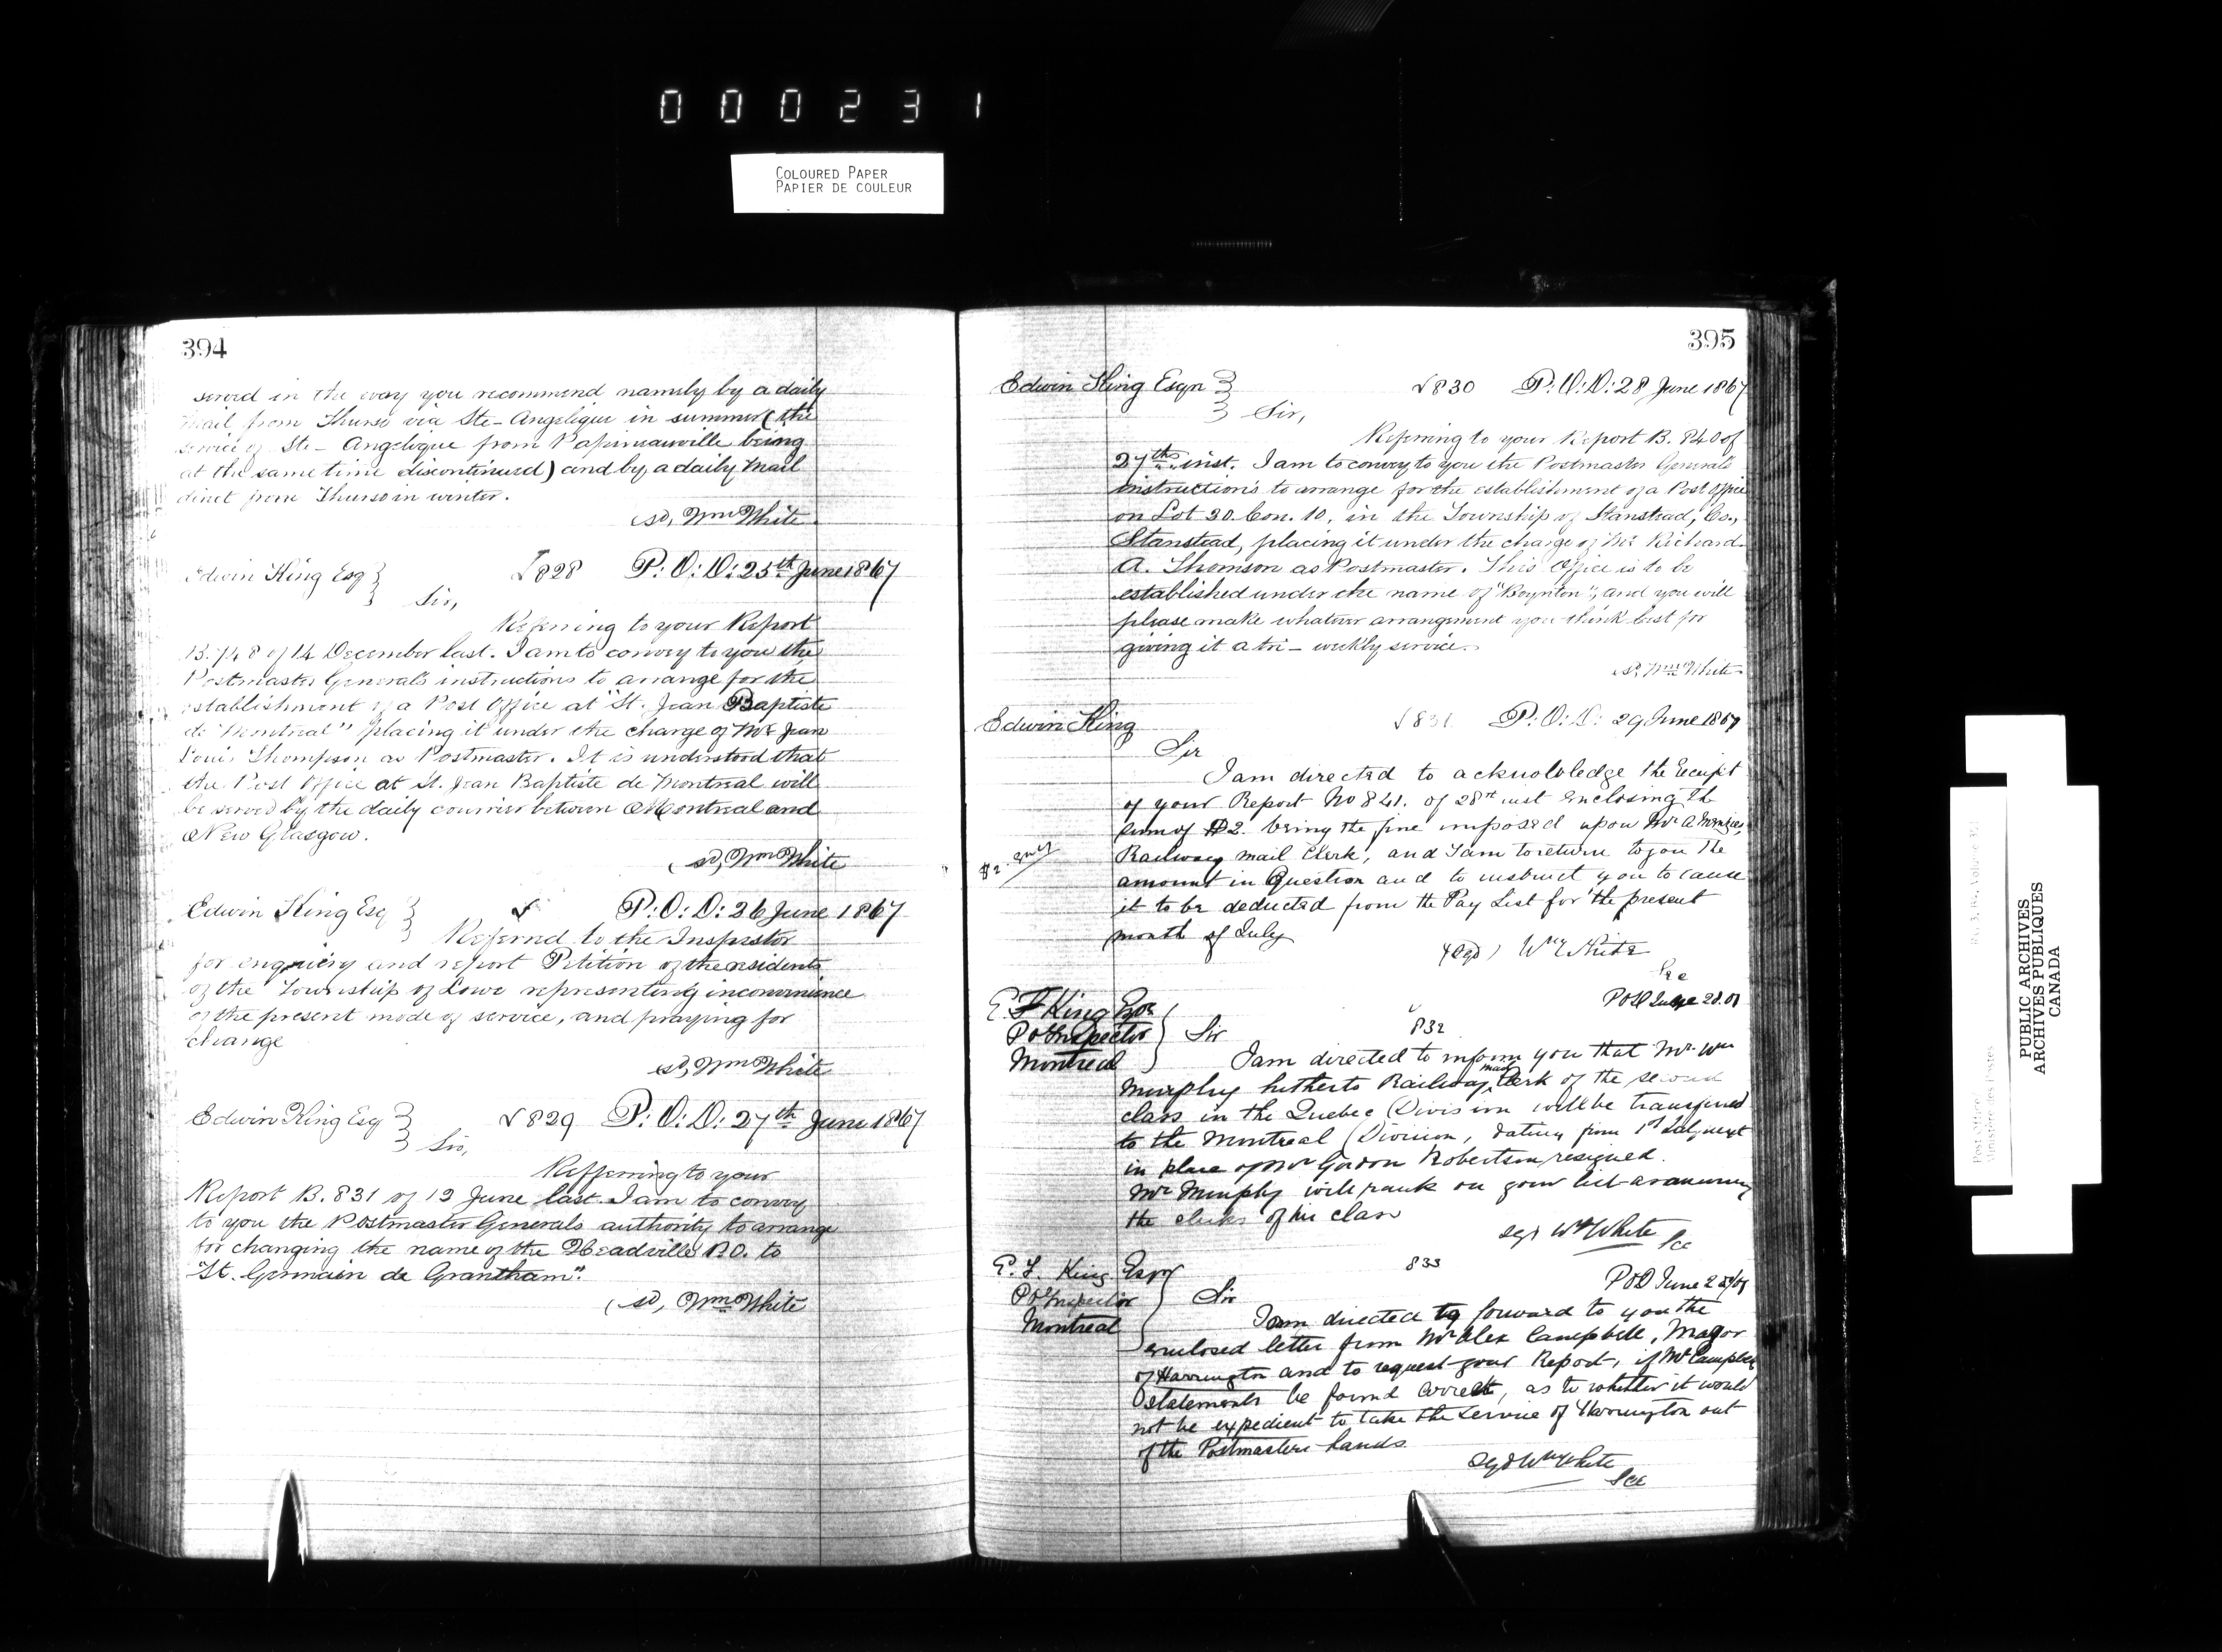 000231
COLOURED PAPER
PAPIER DE COULEUR
394
served in the way you recommend namely by a daily
mail from Thurso via Ste-Angelique in summer (the
service of Ste-Angelique from Papineauville being
at the same time discontinued) and by a daily mail
direct from Thurso in winter.
(sd, Wm White
Edwin King Esq
828 P.O.D. 25th June 1867
Sir,
Referring to your Report
B. 748 of 14 December last. I am to convey to you the
Postmaster General's instructions to arrange for the
establishment of a Post Office at "St. Jean Baptiste
de Montreal" placing it under the charge of Mr Jean
Louis Thompson as Postmaster. It is understood that
the Post Office at St. Jean Baptiste de Montreal will
be served by the daily courrier between Montreal and
New Glasgow.
(sd, Wm White
Edwin King Esq
P.O.D. 26 June 1867
Referred to the Inspector
for enquiery and report Petition of the residents
of the Township of Lowe representing inconvenience
of the present mode of service, and praying for
change
sd, Wm White
Edwin King Esq
829 P.O.D. 27th June 1867
Sir,
Refferring to your
Report B. 831 of 19 June last. I am to convey
to you the Postmaster Generals authority to arrange
for changing the name of the Headville P.O. to
"St. Germain de Grantham".
(sd, Wm White
395
Edwin King Esqr
830 P.O.D. 28 June 1867
Sir,
Referring to your Report B. 840 of
27th inst. I am to convey to you the Postmaster General's
instructions to arrange for the establishment of a Post Office
on Lot 20. Con. 10, in the Township of Stanstead, Co.,
Stanstead, placing it under the charge of Mr Richard
A. Thomson as Postmaster. This Office is to be
established under the name of "Boynton", and you will
please make whatever arrangement you think best for
giving it a tri-weekly service.
sd, Wm White
Edwin King
831 P.O.D. 29 June 1867
Sir
I am directed to acknowledge the receipt
of your Report No 841. of 28th inst enclosing the
sum of $2. being the fine imposed upon Mr A Menzies,
Railway mail Clerk, and I am to return to you the
$2
amount in Question and to instruct you to cause
it to be deducted from the Pay List for the present
month of July
(sgd) Wm White
Sec
E F King Esq
POD June 28.67
PO Inspector
832
Sir
Montreal
I am directed to inform you that Mr Wm
Murphy hitherto Railway mail Clerk of the second
class in the Quebec Division will be transferred
to the Montreal Division, dating from 1st July next
in place of Mr Gordon Robertson, resigned.
Mr Murphy will rank on your list as among
the clerks of his class
sgd Wm White
Sec
E. F. King Esqr
833
POD June 28/67
PO Inspector
Sir
Montreal
I am directed to forward to you the
enclosed letter from Mr Alex Campbell, Mayor
of Harrington and to request your Report, if Mr Campbell
statements be found correct, as to whether it would
not be expedient to take the service of Harrington out
of the Postmasters hands.
Sgd Wm White
Sec
PUBLIC ARCHIVES
ARCHIVES PUBLIQUES
CANADA